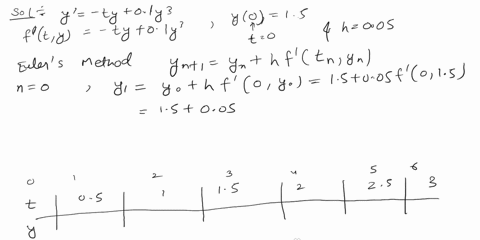 Sol:- y' = -ty + 0.1y³ , y(0) = 1.5
f'(t,y) = -ty + 0.1y³ t=0 & h=0.05
Euler's Method y_{n+1} = y_n + h f'(t_n, y_n)
n=0 , y_1 = y_0 + h f'(0, y_0) = 1.5 + 0.05 f'(0, 1.5)
= 1.5 + 0.05
0 1 2 3 4 5 6
t 0.5 1 1.5 2 2.5 3
y